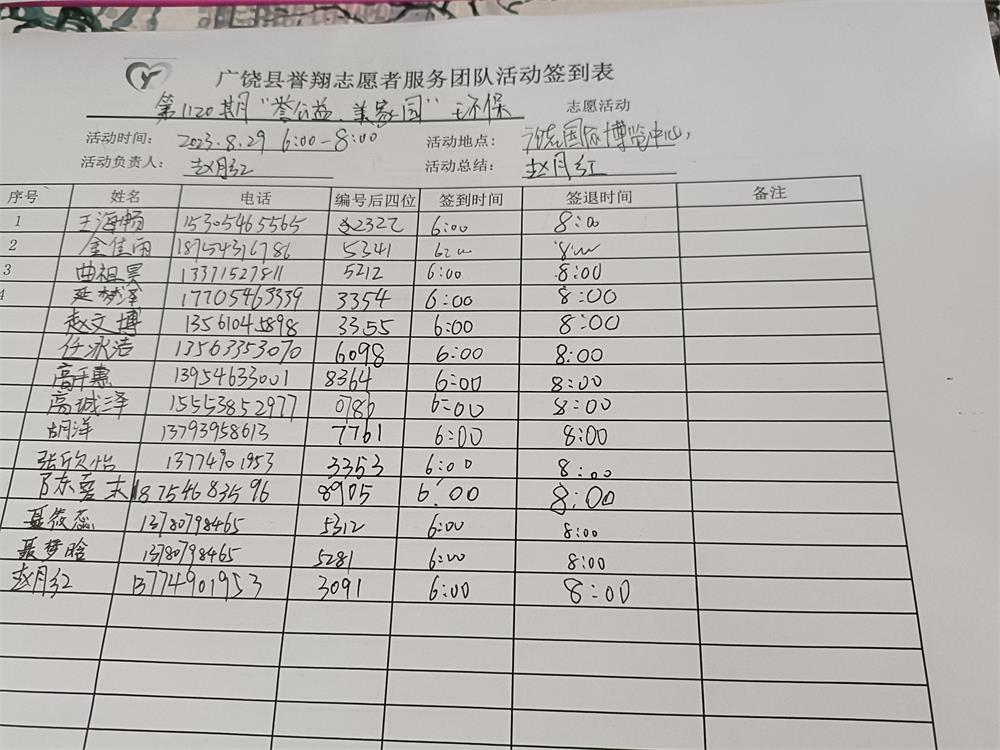 广饶县誉翔志愿者服务团队活动签到表
第1120期“誉公益、美家园”环保 志愿活动
活动时间: 2023.8.29 6:00-8:00 活动地点: 国际博览中心
活动负责人: 赵月红 活动总结: 赵月红
序号 姓名 电话 编号后四位 签到时间 签退时间 备注
1 王海畅 15305465565 2327 6:00 8:00
2 金佳雨 18754316786 5341 6:00 8:00
3 曲祖昊 13371527811 5212 6:00 8:00
4 延梦泽 17705463339 3354 6:00 8:00
赵文博 13561045898 3355 6:00 8:00
任冰洁 13563353070 6098 6:00 8:00
高千惠 13954633001 8364 6:00 8:00
高城泽 15553852977 0786 6:00 8:00
胡洋 13793958613 7761 6:00 8:00
张欣怡 13774901953 3353 6:00 8:00
陈东 18754683596 8905 6:00 8:00
聂筱蕊 13780798465 5312 6:00 8:00
聂梦晗 13780798465 5281 6:00 8:00
赵月红 13774901953 3091 6:00 8:00